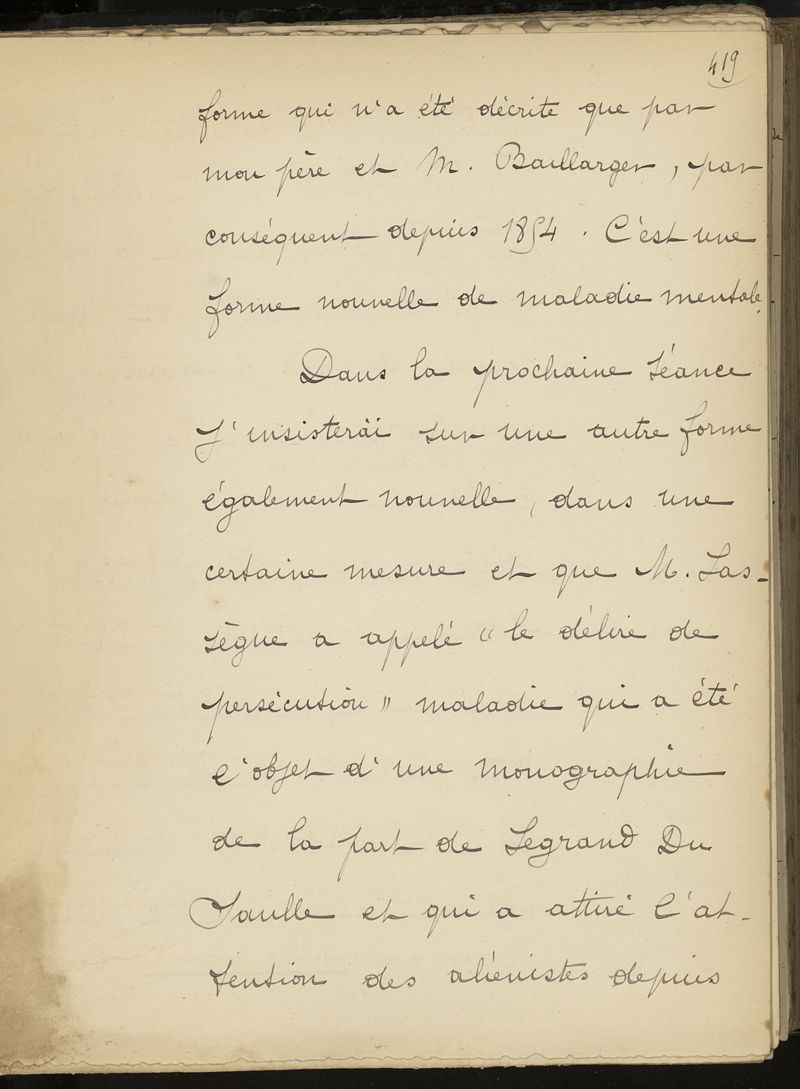 419
forme qui n'a été décrite que par
mon père et M. Baillarger, par
conséquent depuis 1854. C'est une
forme nouvelle de maladie mentale.
Dans la prochaine séance
j'insisterai sur une autre forme
également nouvelle, dans une
certaine mesure et que M. Las-
sègue a appelé "le délire de
persécution" maladie qui a été
l'objet d'une monographie
de la part de Legrand Du
Saulle et qui a attiré l'at-
tention des aliénistes depuis